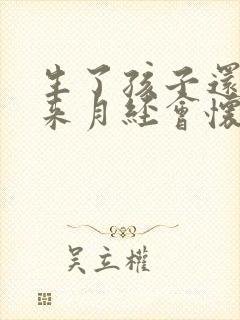 生了孩子還
來月經會懷
吴立權